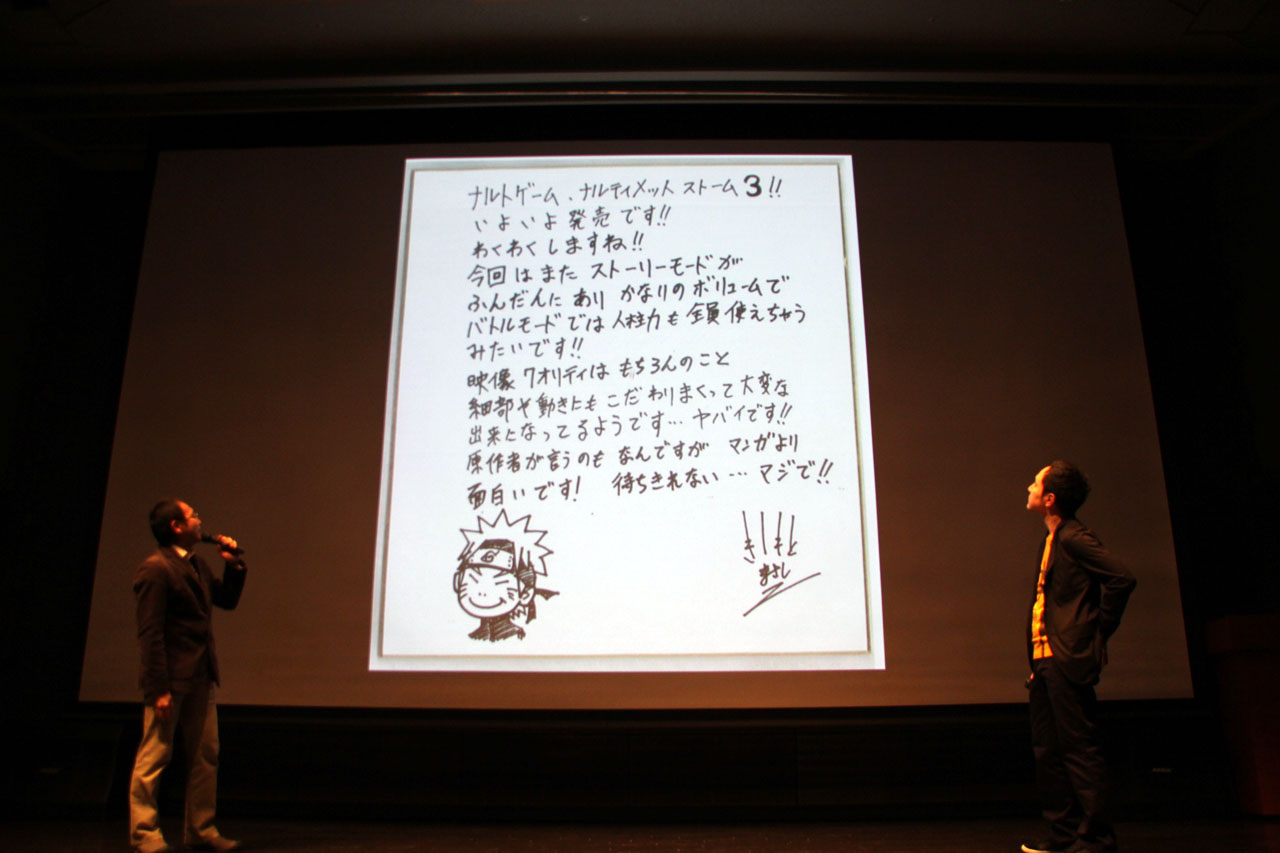 ナルトゲーム、ナルティメットストーム3!!
いよいよ発売です!!
わくわくしますね!!
今回はまたストーリーモードが
ふんだんにあり かなりのボリュームで
バトルモードでは人柱力も全員使えちゃう
みたいです!!
映像クオリティはもちろんのこと
細部や動きにもこだわりまくって大変な
出来になってるようです…ヤバイです!!
原作者が言うのもなんですが マンガより
面白いです! 待ちきれない…マジで!!
きしもと
まさし